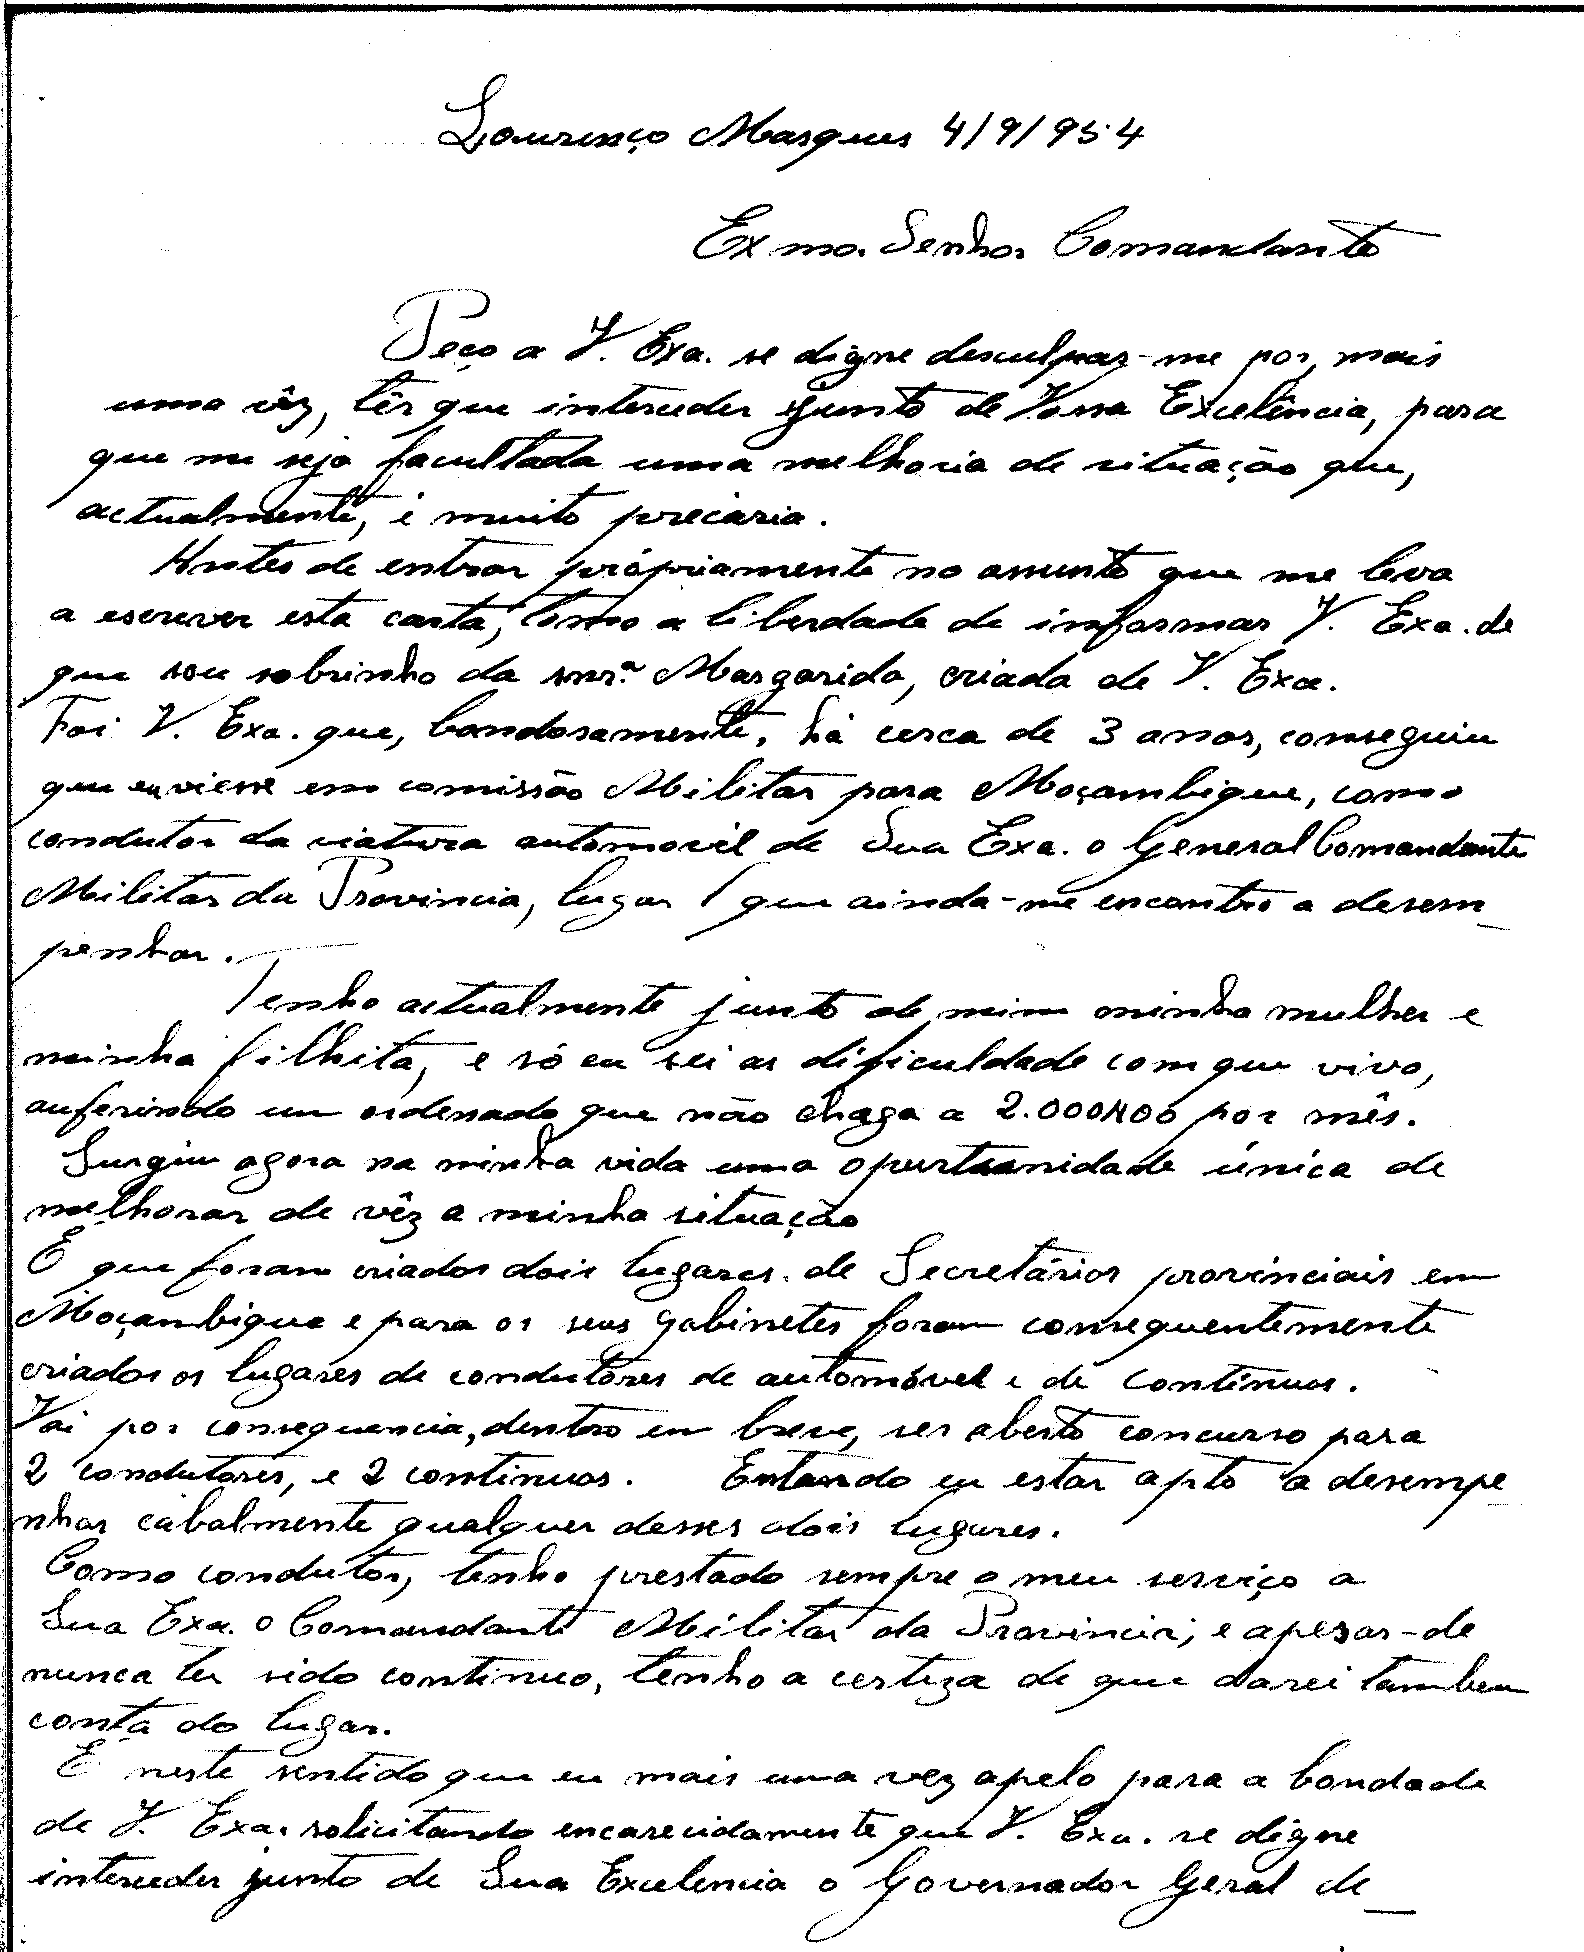 Lourenço Marques 4/9/954
Exmo. Senhor Comandante
Peço a V. Exa. se digne desculpar-me por, mais
uma vêz, têr que interceder junto de Vossa Excelência, para
que me seja facultada uma melhoria de situação que,
actualmente, é muito precária.
Antes de entrar pròpriamente no assunto que me leva
a escrever esta carta, tomo a liberdade de informar V. Exa. de
que sou sobrinho da snrª. Margarida, criada de V. Exa.
Foi V. Exa. que, bondosamente, há cerca de 3 anos, conseguiu
que eu viesse em comissão Militar para Moçambique, como
condutor da viatura automovel de Sua Exa. o General Comandante
Militar da Provincia, lugar que ainda-me encontro a desem_
penhar.
Tenho actualmente junto de mim minha mulher e
minha filhita, e só eu sei as dificuldade com que vivo,
auferindo um ordenado que não chega a 2.000$00 por mês.
Surgiu agora na minha vida uma oportunidade única de
melhorar de vêz a minha situação
É que foram criados dois lugares de Secretários provinciais em
Moçambique e para os seus gabinetes foram consequentemente
criados os lugares de condutôres de automóvel e de contínuos.
Vai por consequencia, dentro em breve, ser aberto concurso para
2 condutores, e 2 continuos. Entendo eu estar apto a desempe_
nhar cabalmente qualquer desses dois lugares.
Como condutor, tenho prestado sempre o meu serviço a
Sua Exa. o Comandante Militar da Provincia, e apesar-de
nunca ter sido continuo, tenho a certeza de que darei tambem
conta do lugar.
É neste sentido que eu mais uma vez apelo para a bondade
de V. Exa. solicitando encarecidamente que V. Exa. se digne
interceder junto de Sua Excelencia o Governador Geral de_